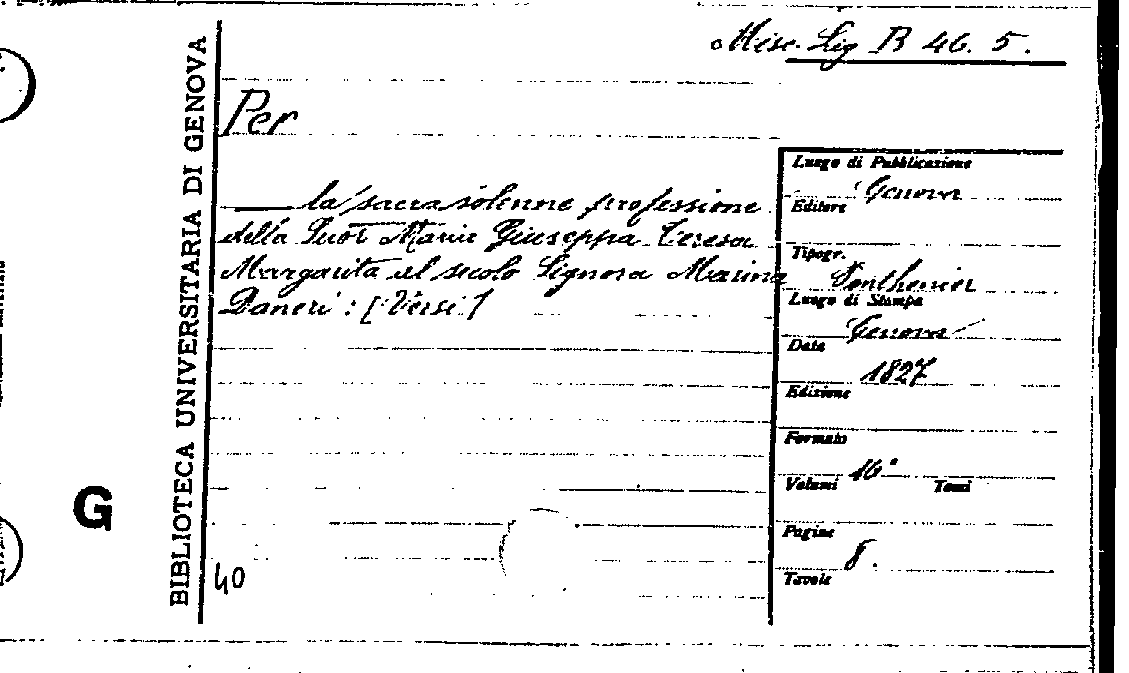 Misc. Lig B 46. 5.
BIBLIOTECA UNIVERSITARIA DI GENOVA
Per
la sacra solenne professione
della Suor Maria Giuseppa Teresa
Margarita al secolo Signora Marina
Daneri : [Versi]
Luogo di Pubblicazione
Genova
Editore
Tipogr.
Ponthenier
Luogo di Stampa
Genova
Data
1827
Edizione
Formato
16°
Volumi Tomi
Pagine
8.
Tavole
G
40